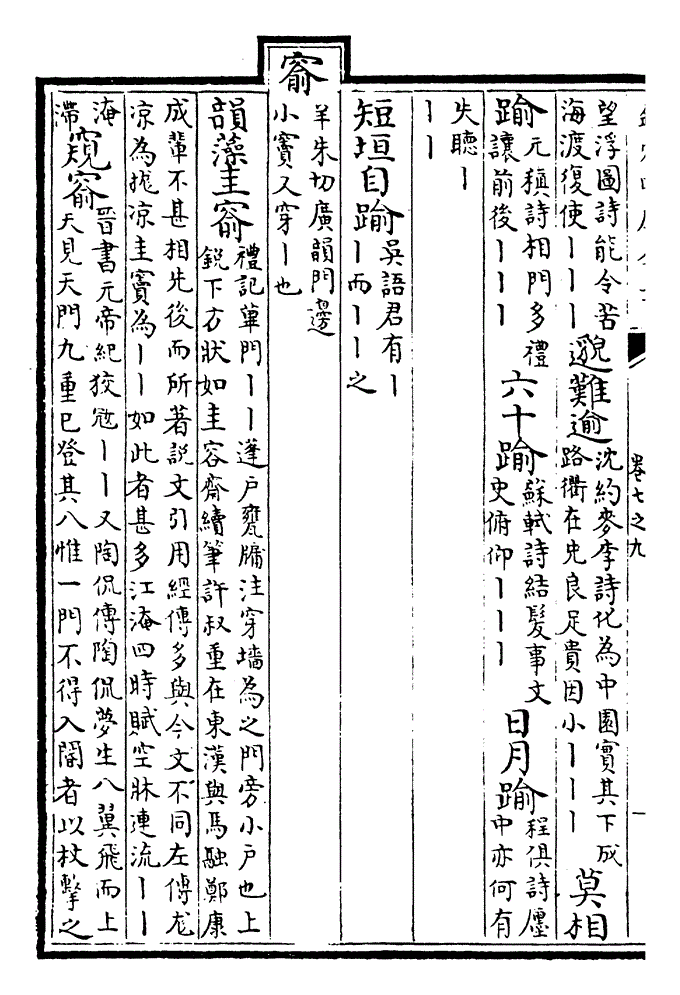 卷七之九
望浮圖詩能令苦
海渡復使｜｜｜
邈難逾
沈約麥李詩化為中園實其下成
路衢在先良足貴因小｜｜｜
莫相
踰
元稹詩相門多禮
讓前後｜｜｜
六十踰
蘇軾詩結髮事文
史俯仰｜｜｜
日月踰
程俱詩廛
中亦何有
失聽｜
｜｜
短垣自踰
吳語君有｜
｜而｜｜之
窬
羊朱切廣韻門邊
小竇又穿｜也
韻藻圭窬
禮記蓽門｜｜蓬戶甕牖注穿墻為之門旁小戶也上
銳下方狀如圭容齋續筆許叔重在東漢與馬融鄭康
成輩不甚相先後而所著説文引用經傳多與今文不同左傳尨
涼為牻涼圭竇為｜｜如此者甚多江淹四時賦空牀連流｜｜
淹
滯
窺窬
晉書元帝紀狡寇｜｜又陶侃傳陶侃夢生八翼飛而上
天見天門九重已登其八惟一門不得入閽者以杖擊之